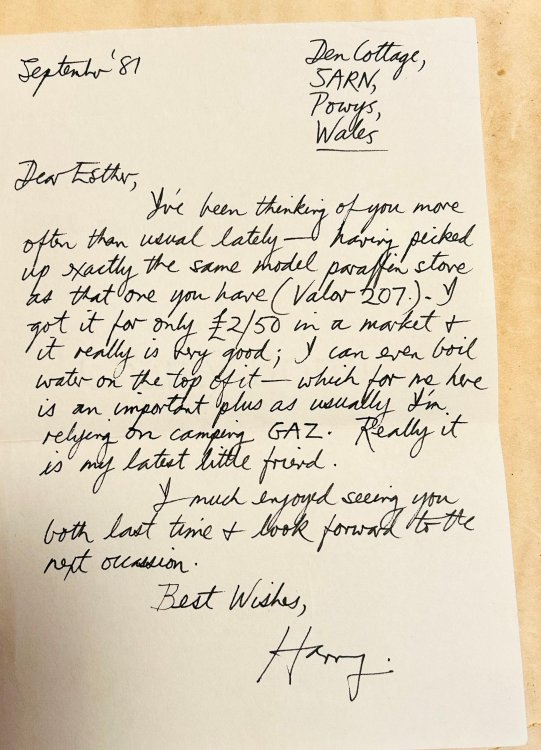 September '81
Den Cottage,
SARN,
Powys,
Wales
Dear Esther,
I've been thinking of you more
often than usual lately — having picked
up exactly the same model paraffin stove
as that one you have (Valor 207.). I
got it for only £2/50 in a market &
it really is very good; I can even boil
water on the top of it — which for me here
is an important plus as usually I'm
relying on camping GAZ. Really it
is my latest little friend.
I much enjoyed seeing you
both last time & look forward to the
next occassion.
Best Wishes,
Harry.